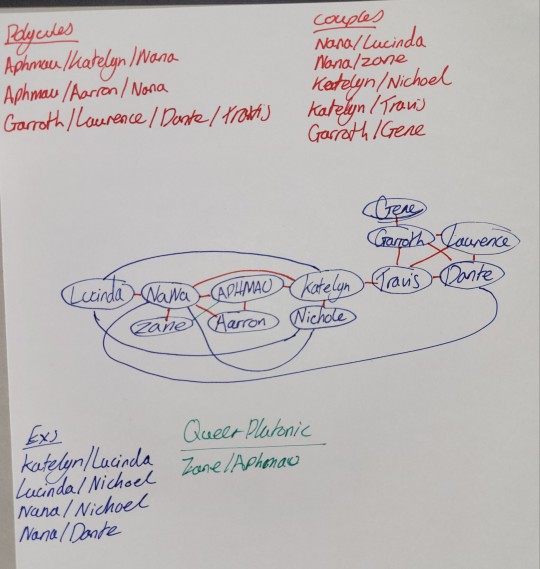 Polycules
Aphmau/Katelyn/Nana
Aphmau/Aarron/Nana
Garroth/Laurence/Dante/Travis
Couples
Nana/Lucinda
Nana/Zane
Katelyn/Nichoel
Katelyn/Travis
Garroth/Gene
Gene
Garroth
Laurence
Lucinda
Nana
APHMAU
Katelyn
Travis
Dante
Zane
Aarron
Nichole
Exs
Katelyn/Lucinda
Lucinda/Nichoel
Nana/Nichoel
Nana/Dante
Queer Platonic
Zane/Aphmau